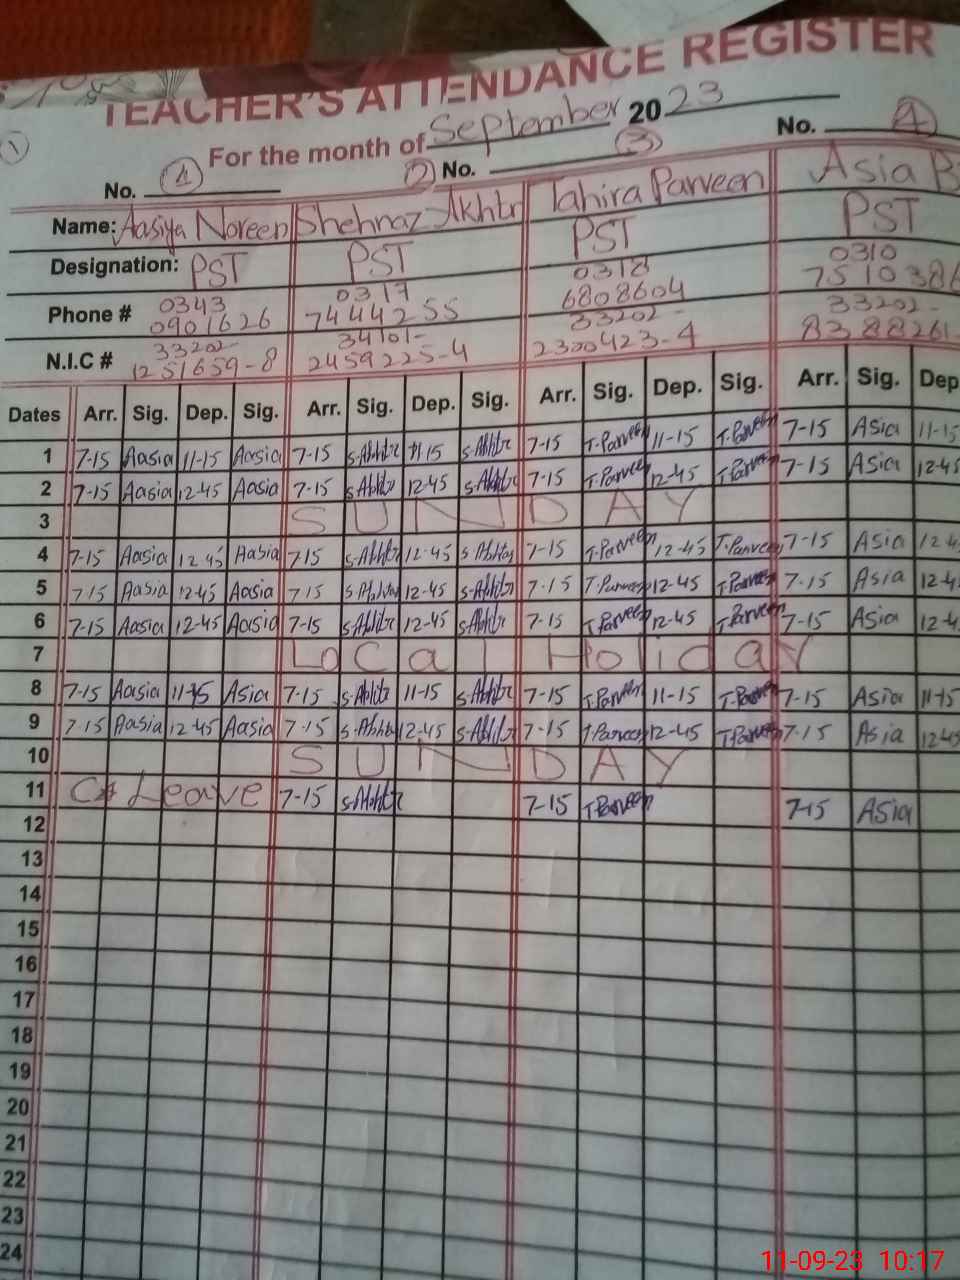 TEACHER'S ATTENDANCE REGISTER
For the month of September 2023
1
No. 1 2 No. 3 No. 4
Name: Aasiya Noreen Shehnaz Akhtr Tahira Parveen Asia
Designation: PST PST PST PST
Phone # 0343 0901626 0317 7444255 0318 6808604 0310 7510386
N.I.C # 33202- 1251659-8 34101- 2459225-4 33202- 2300423-4 33202- 8388261-
Dates Arr. Sig. Dep. Sig. Arr. Sig. Dep. Sig. Arr. Sig. Dep. Sig. Arr. Sig. Dep
1 7-15 Aasia 11-15 Aasia 7-15 S.Akhtr 11-15 S.Akhtr 7-15 T.Parveen 11-15 T.Parveen 7-15 Asia 11-15
2 7-15 Aasia 12-45 Aasia 7-15 S.Akhtr 12-45 S.Akhtr 7-15 T.Parveen 12-45 T.Parveen 7-15 Asia 12-45
3 SUNDAY
4 7-15 Aasia 12-45 Aasia 7-15 S.Akhtr 12-45 S.Akhtr 7-15 T.Parveen 12-45 T.Parveen 7-15 Asia 12-4
5 7-15 Aasia 12-45 Aasia 7-15 S.Akhtr 12-45 S.Akhtr 7-15 T.Parveen 12-45 T.Parveen 7-15 Asia 12-4
6 7-15 Aasia 12-45 Aasia 7-15 S.Akhtr 12-45 S.Akhtr 7-15 T.Parveen 12-45 T.Parveen 7-15 Asia 12-4
7 Local Holiday
8 7-15 Aasia 11-15 Asia 7-15 S.Akhtr 11-15 S.Akhtr 7-15 T.Parveen 11-15 T.Parveen 7-15 Asia 11-15
9 7-15 Aasia 12-45 Aasia 7-15 S.Akhtr 12-45 S.Akhtr 7-15 T.Parveen 12-45 T.Parveen 7-15 Asia 12-45
10 SUNDAY
11 Leave 7-15 S.Akhtr 7-15 T.Parveen 7-15 Asia
12
13
14
15
16
17
18
19
20
21
22
23
24
11-09-23 10:17